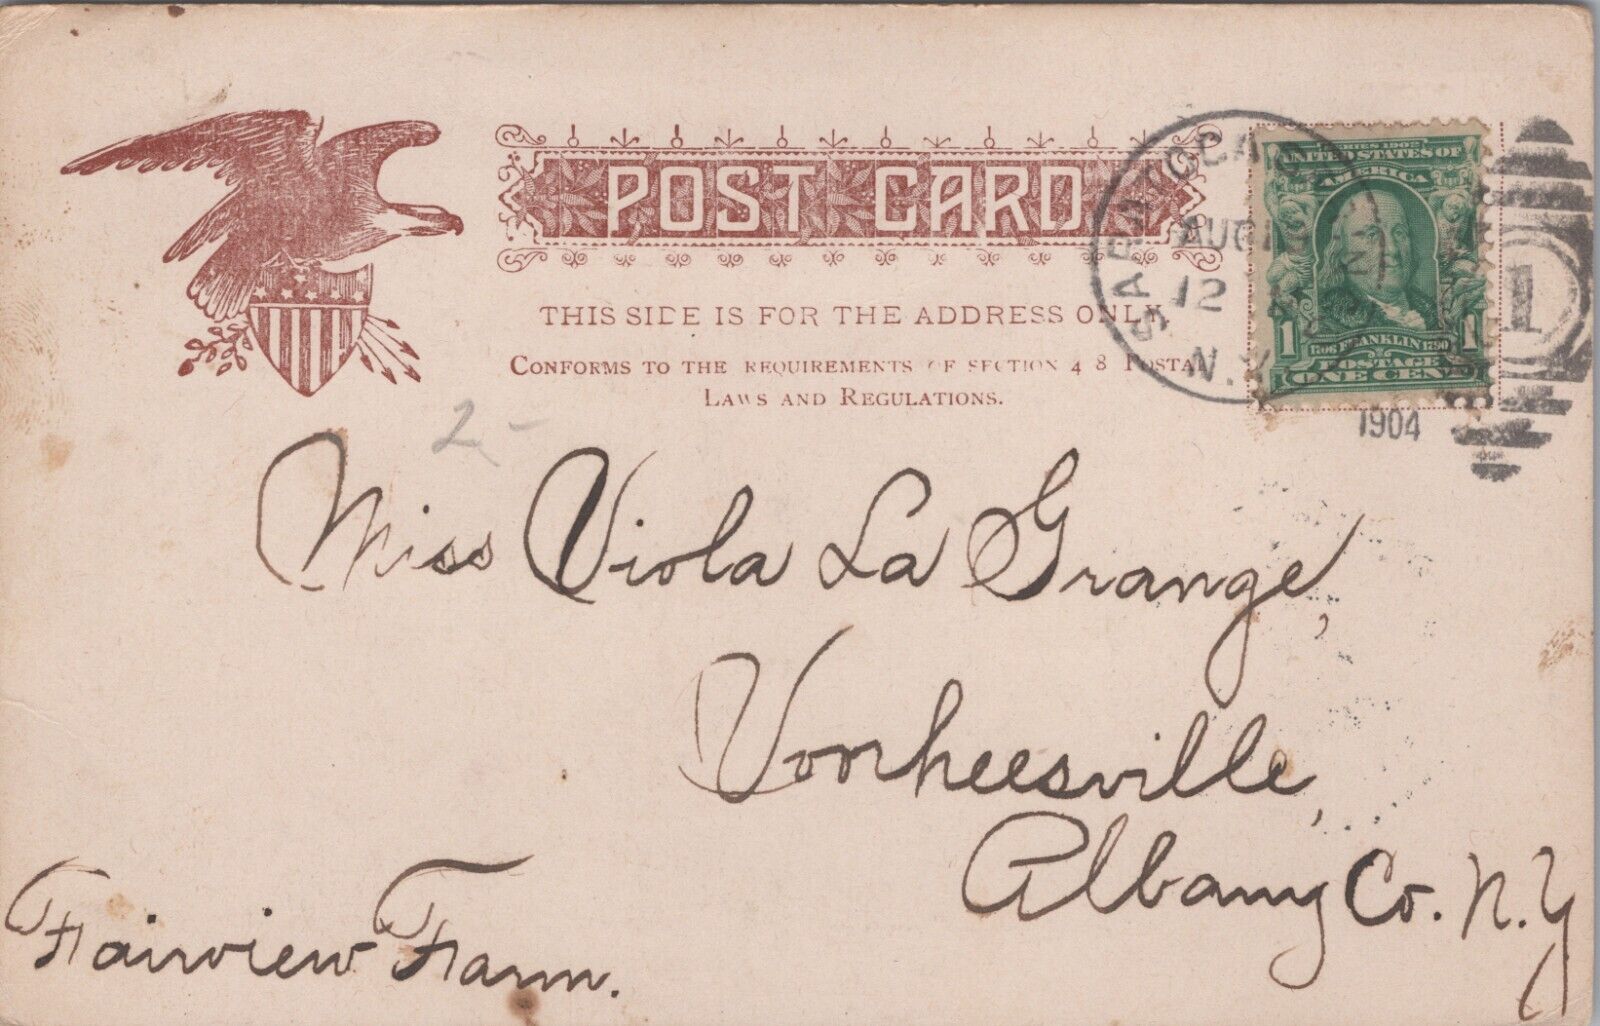 POST CARD
THIS SIDE IS FOR THE ADDRESS ONLY
CONFORMS TO THE REQUIREMENTS OF SECTION 4 8 POSTAL
LAWS AND REGULATIONS.
AUG
12
N.Y.
1904
1
SERIES 1902
UNITED STATES OF
AMERICA
1 1
1706 FRANKLIN 1790
POSTAGE
ONE CENT
2-
Miss Viola La Grange,
Voorheesville,
Albany Co. N.Y
Fairview Farm.